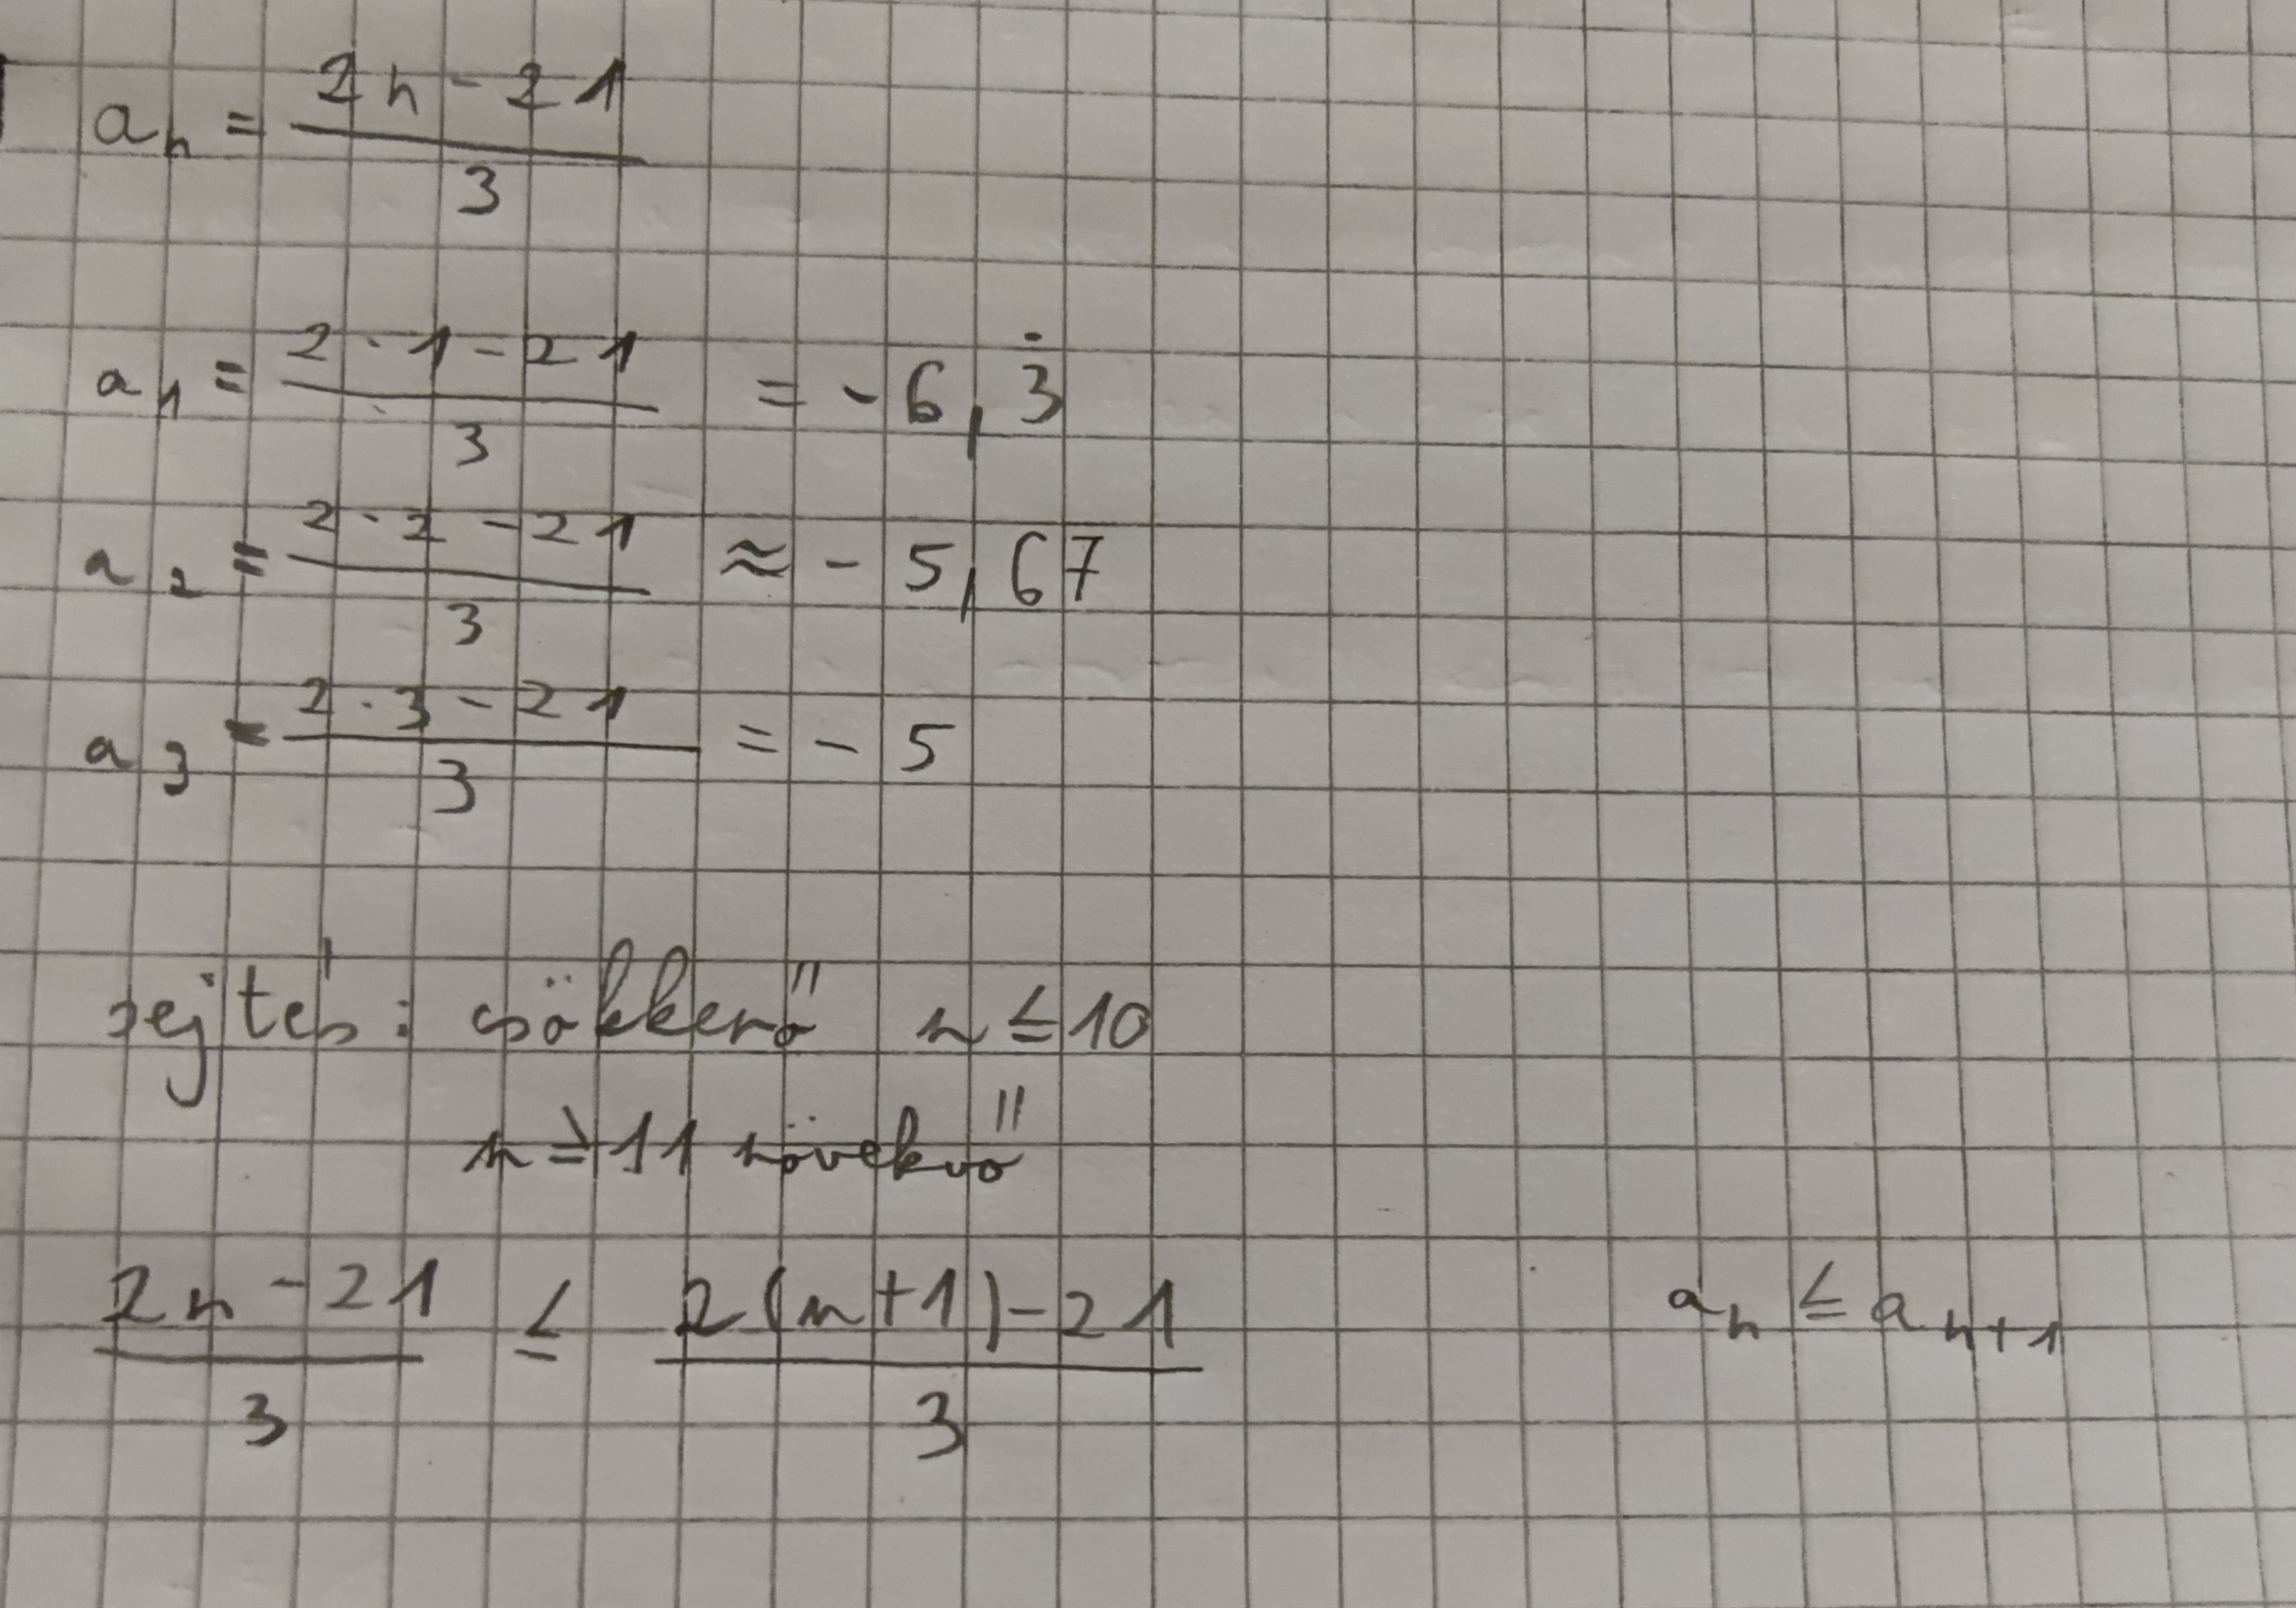 aₙ = (2n - 21)/3
a₁ = (2 · 1 - 21)/3 = - 6,3̇
a₂ = (2 · 2 - 21)/3 ≈ - 5,67
a₃ = (2 · 3 - 21)/3 = - 5
sejtés: csökkenő n ≤ 10
n ≥ 11 növekvő
(2n - 21)/3 ≤ (2(n+1) - 21)/3 aₙ ≤ aₙ₊₁